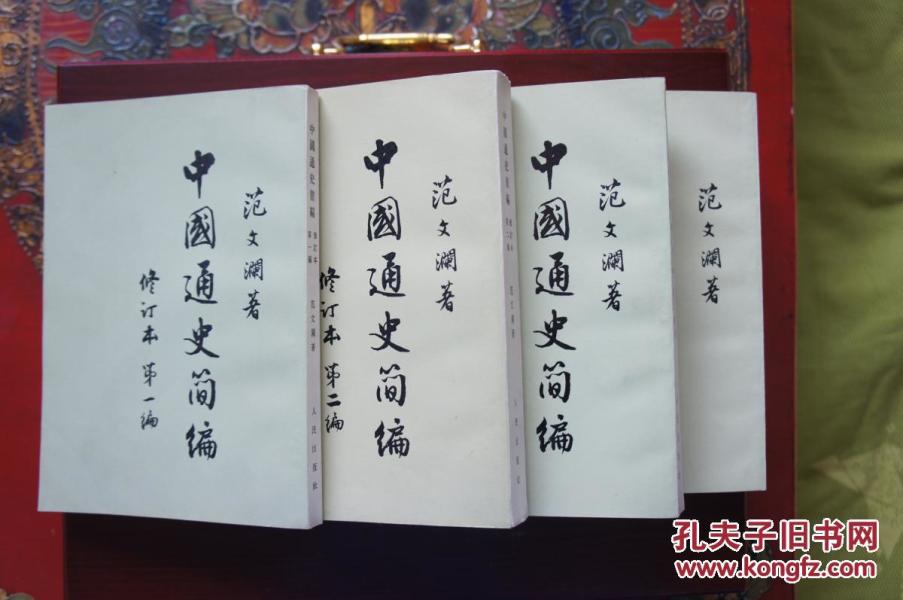 范文瀾著
中國通史简编
修订本 第一编
中國通史簡編 修訂本 第一編 范文瀾著 人民出版社
范文瀾著
中國通史简编
修订本 第二编
中國通史簡編 修訂本 第二編 范文瀾著 人民出版社
范文瀾著
中國通史简编
范文瀾著
孔夫子旧书网
www.kongfz.com